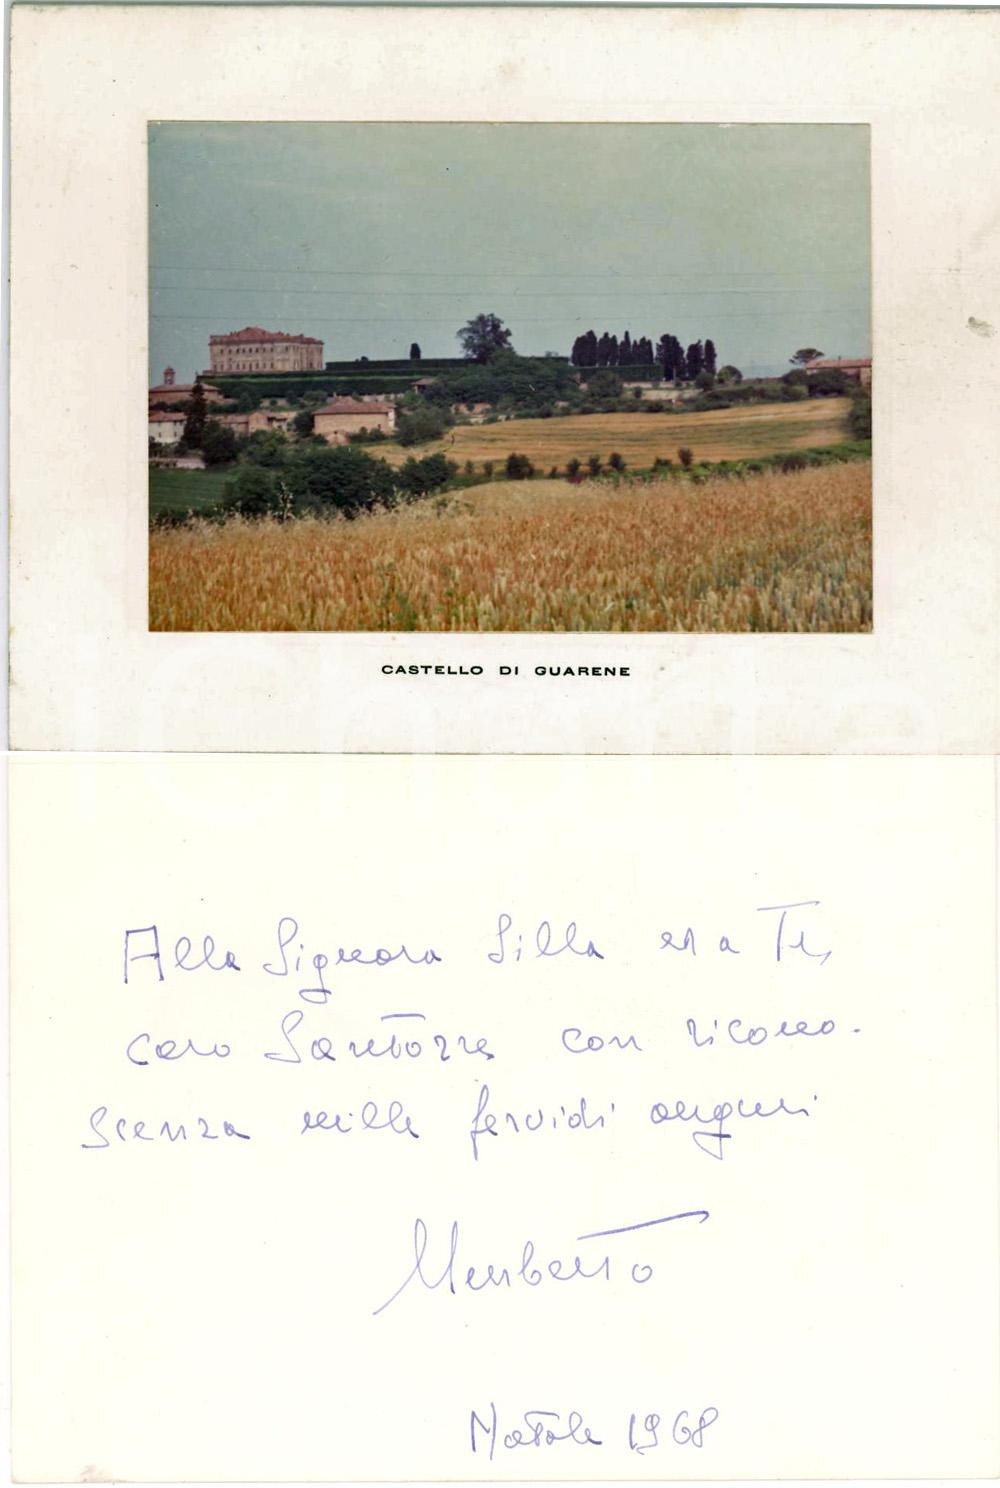 CASTELLO DI GUARENE
Alla Signora Silla ed a Te,
caro Santorre con ricono-
scenza mille fervidi auguri
Umberto
Natale 1968